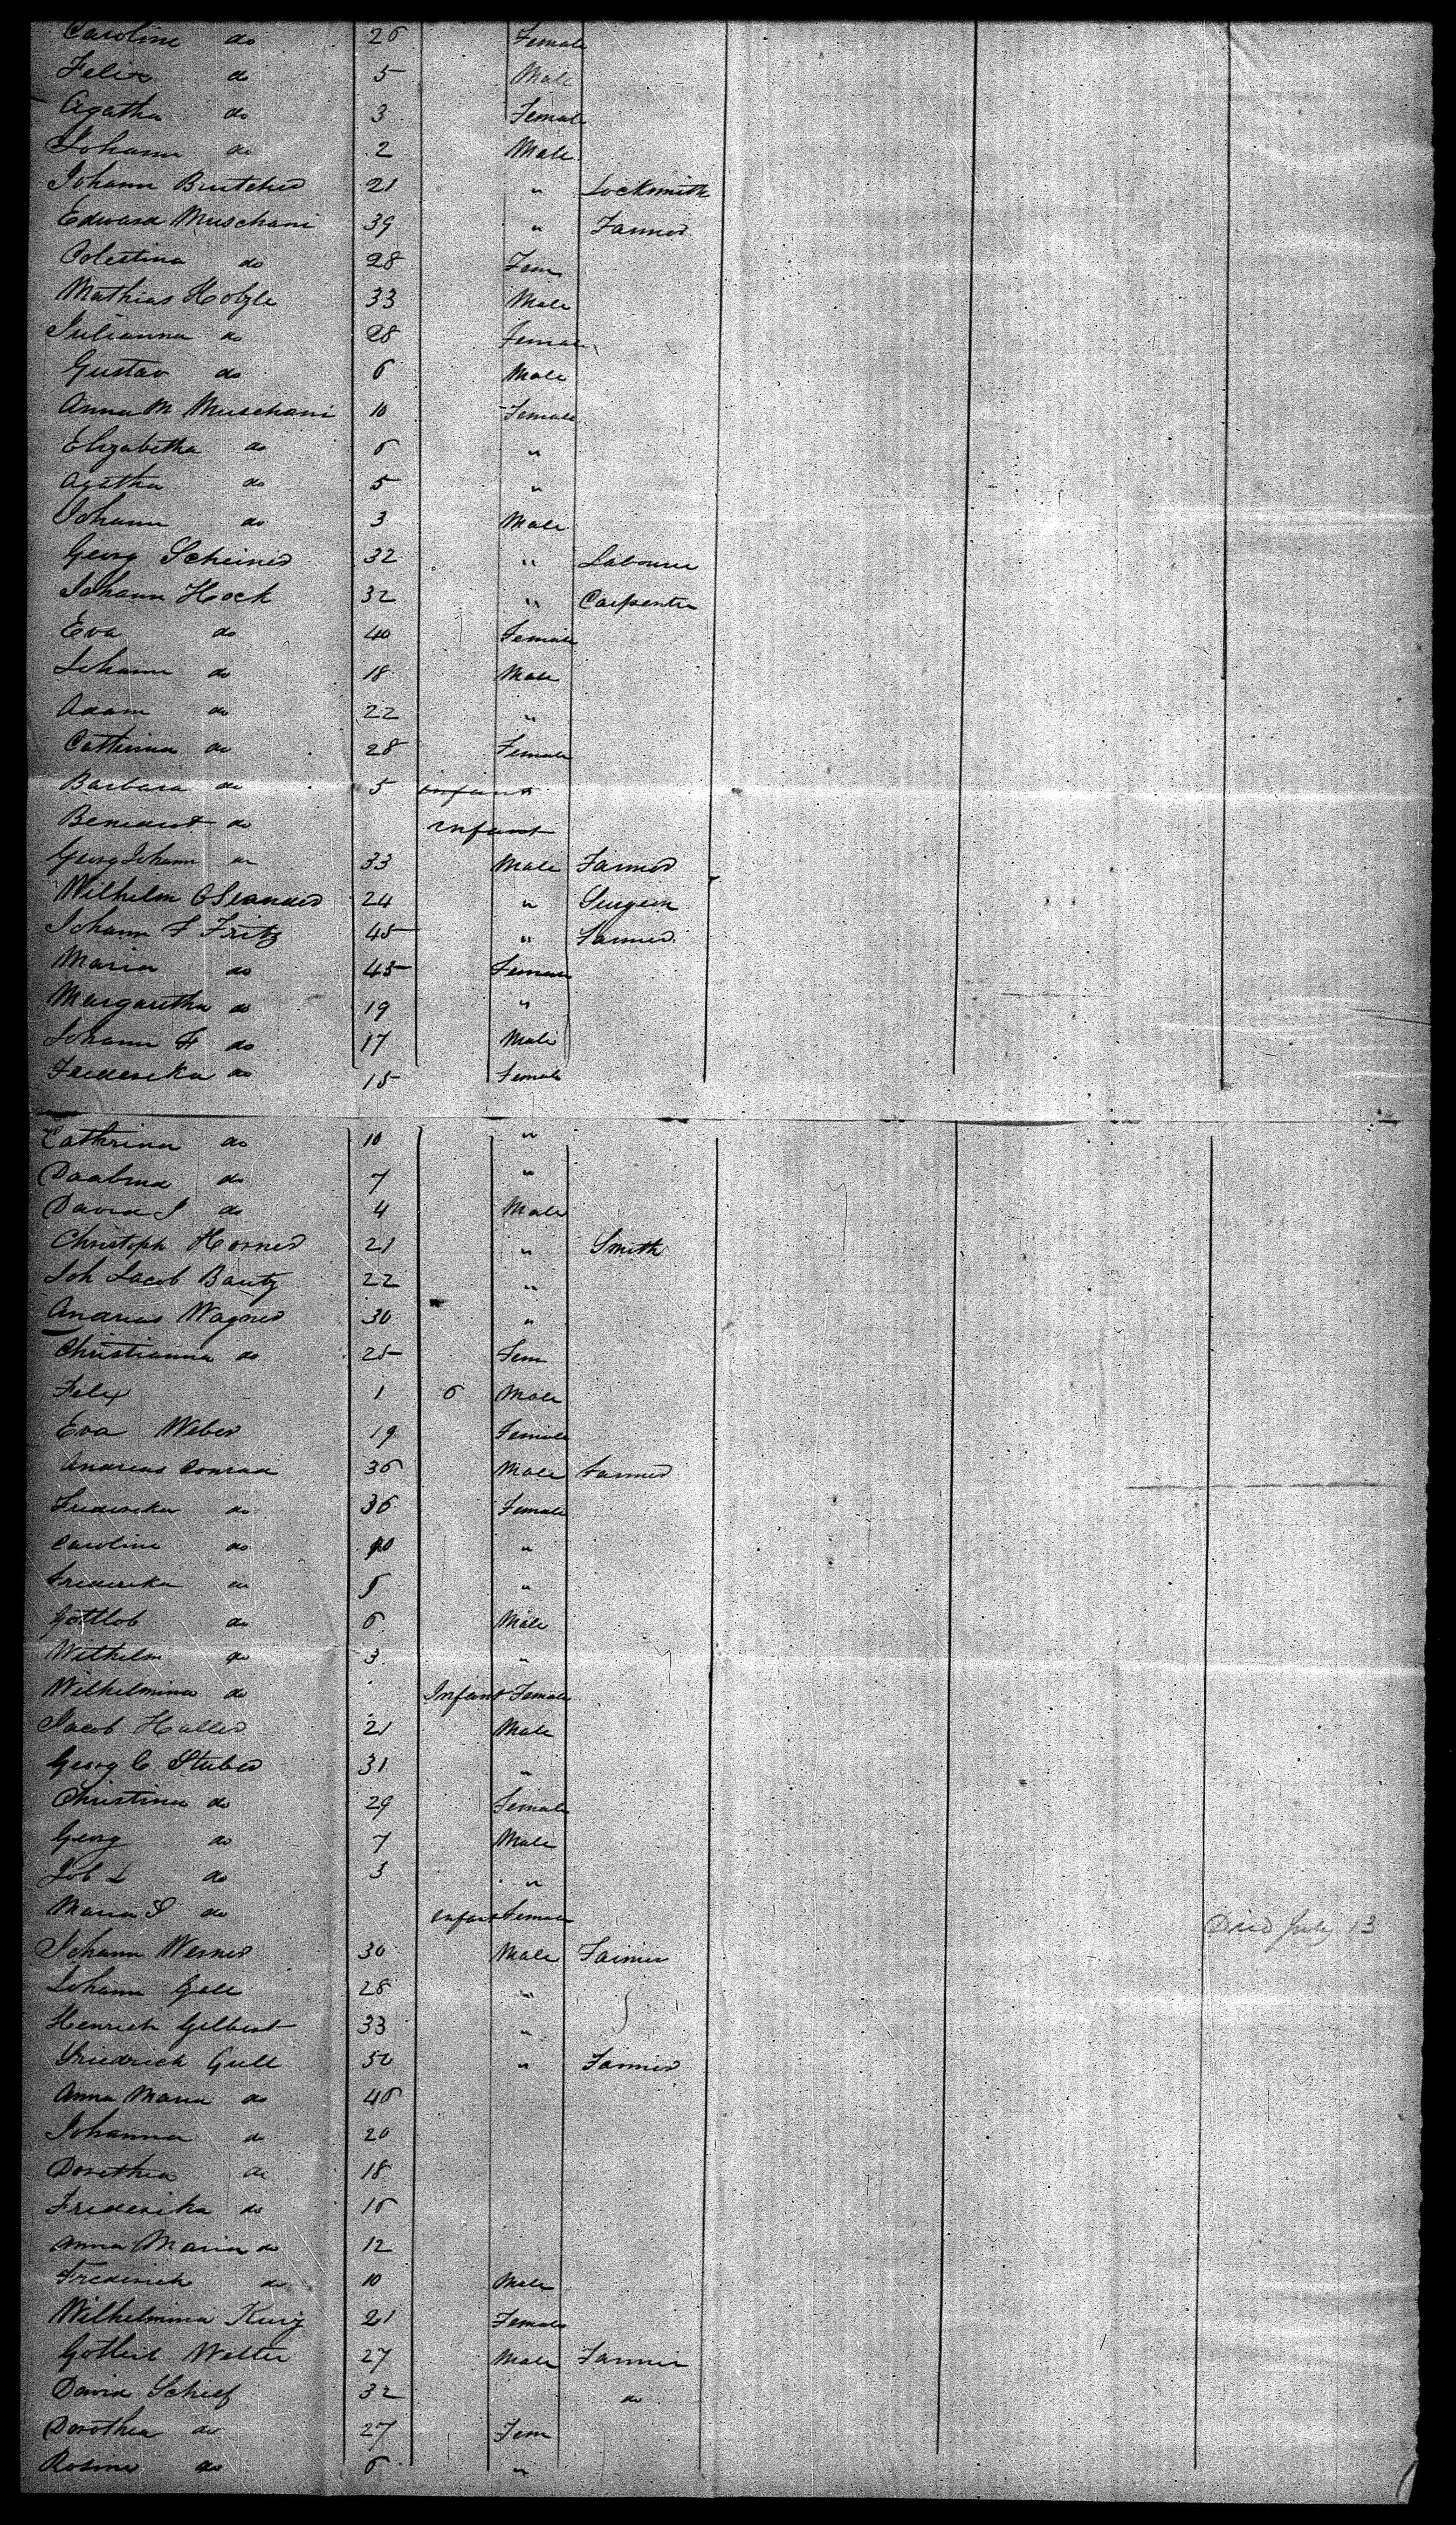 Caroline do 26 Female
Felix do 5 Male
Agatha do 3 Female
Johann do 2 Male
Johann Brutcher 21 " Locksmith
Edward Muschani 39 " Farmer
Colestina do 28 Fem
Mathias Holzle 33 Male
Julianna do 28 Female
Gustav do 6 Male
Anna M Muschani 10 Female
Elizabetha do 6 "
Agatha do 5 "
Johann do 3 Male
Georg Scheiner 32 " Labourer
Johann Hock 32 " Carpenter
Eva do 40 Female
Johann do 18 Male
Adam do 22 "
Catherina do 28 Female
Barbara do 5 infant
Benedict do infant
Georg Johann do 33 Male Farmer
Wilhelm Oslander 24 " Surgeon
Johann F Fritz 45 " Farmer
Maria do 43 Female
Margaretha do 19 "
Johann F do 17 Male
Frederika do 15 Female
Cathrina do 10 "
do 7 "
David J do 4 Male
Christoph Horner 21 " Smith
Joh Jacob Bautz 22 "
Andreas Wagner 30 "
Christianna do 25 Fem
Felix 1 6 Male
Eva Weber 19 Female
Andreas Conrad 36 Male Farmer
Frederika do 36 Female
Caroline do 10 "
Frederika do "
Gottlob do 6 Male
Wilhelm do 3 "
Wilhelmina do Infant Female
Jacob Haller 21 Male
Georg C. Stuber 31 "
Christina do 29 Female
Georg do 7 Male
Job L do 3 "
Maria S do Infant Female Died July 13
Johann Werner 30 Male Farmer
Johann Gall 28 "
Henrich Gilbert 33 "
Friedrich Gull 50 " Farmer
Anna Maria do 46
Johanna do 20
Dorothea do 18
Frederika do 16
Anna Maria do 12
Frederick do 10 Male
Wilhelmina Kurz 21 Female
Gotleib Walter 27 Male Farmer
David Scheef 32 do
Dorothea do 27 Fem
Rosine do 6 "